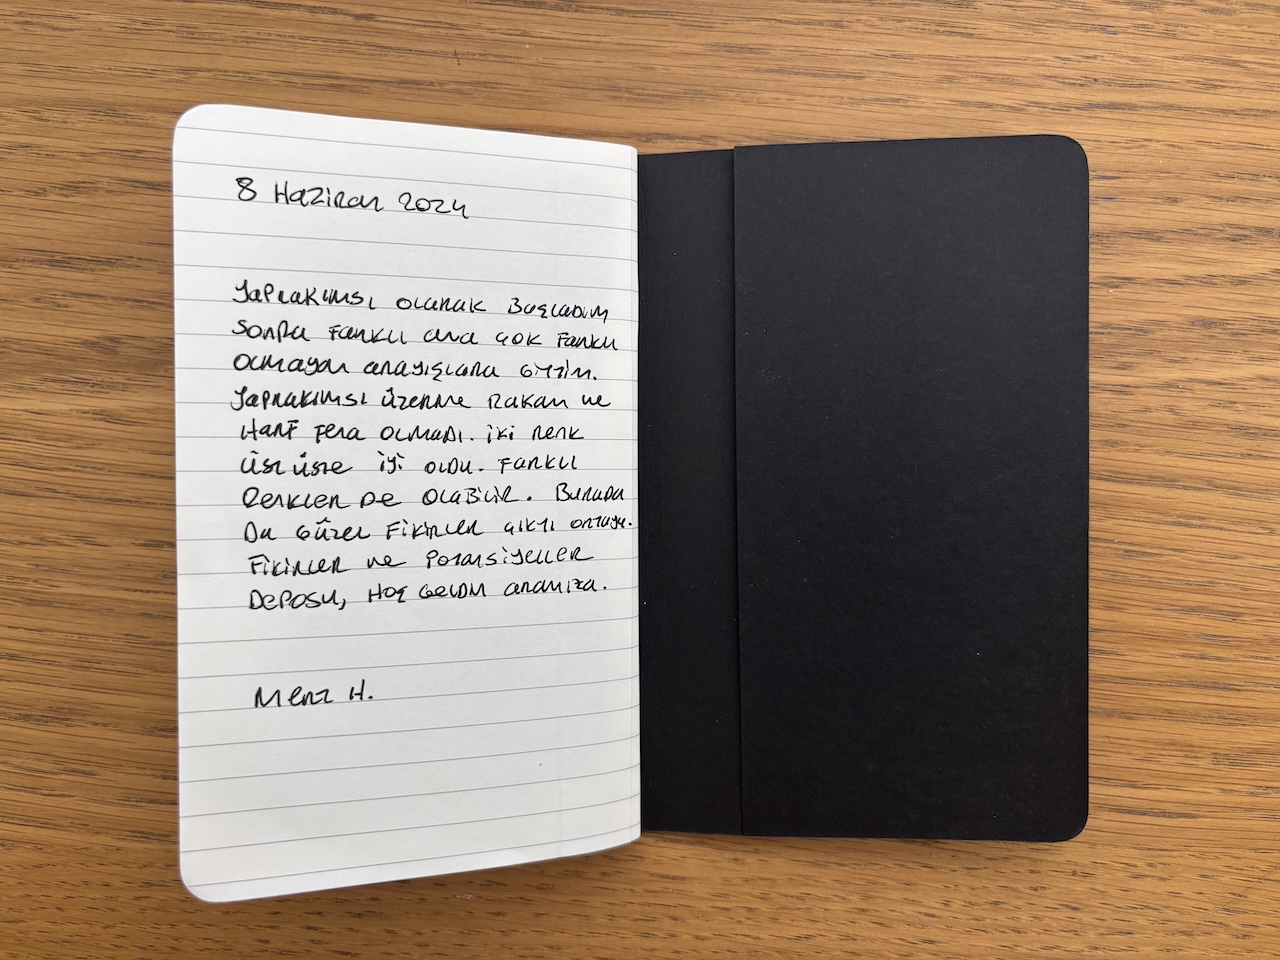 8 Haziran 2024
Yaprakımsı olarak Başladım
Sonra Farklı ama çok Farklı
olmayan arayışlara Gittim.
Yaprakımsı üzerine Rakam ve
Harf Fena olmadı. iki renk
üst üste iyi oldu. Farklı
Renkler de olabilir. Burada
Da Güzel Fikirler çıktı ortaya.
Fikirler ve Potansiyeller
Deposu, Hoş Geldin aramıza.
Mert H.